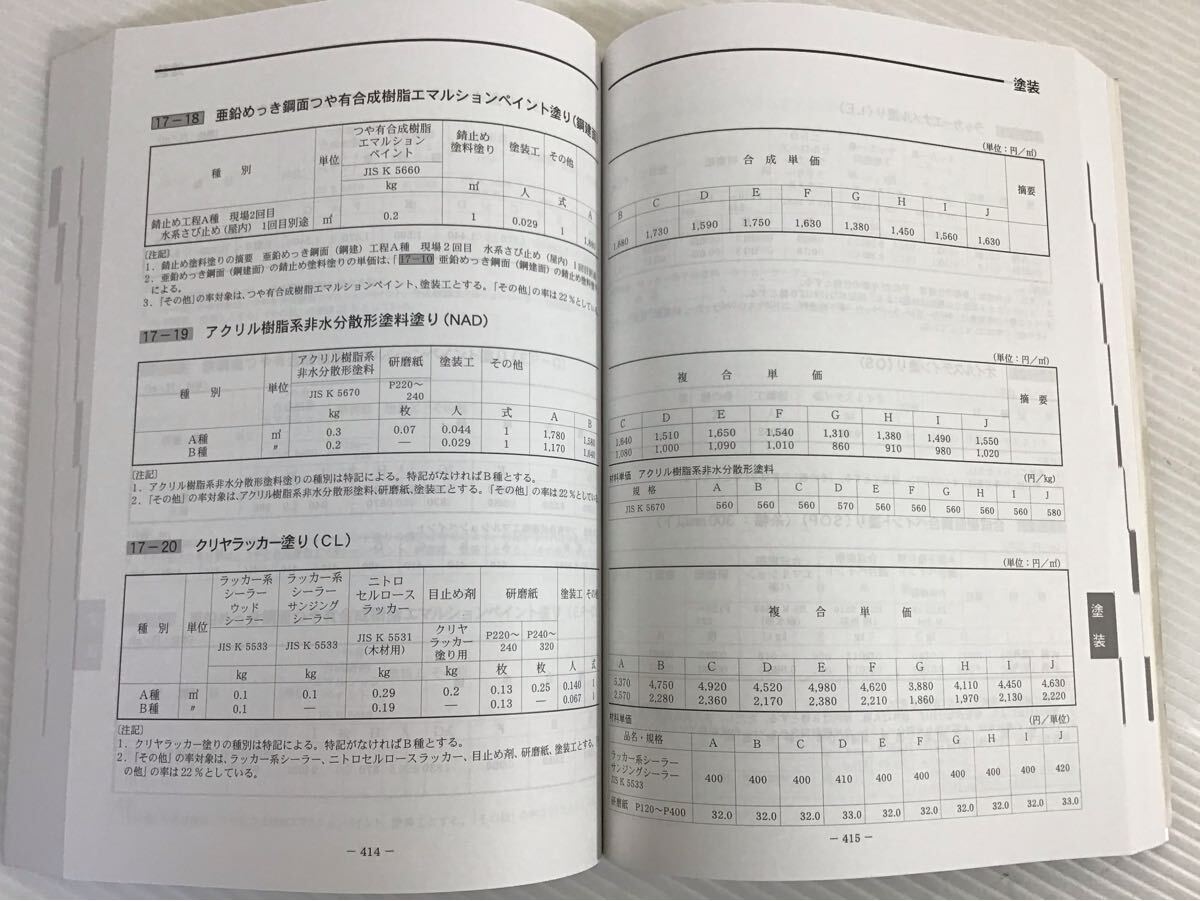 17－18 亜鉛めっき鋼面つや有合成樹脂エマルションペイント塗り(鋼建面
種別 単位 つや有合成樹脂エマルションペイント 錆止め塗料塗り 塗装工 その他
JIS K 5660
kg ㎡ 人 式 A
錆止め工程A種 現場2回目
水系さび止め(屋内) 1回目別途 ㎡ 0.2 1 0.029 1
〔注記〕
1. 錆止め塗料塗りの摘要 亜鉛めっき鋼面(鋼建)工程A種 現場2回目 水系さび止め(屋内)1回目
2. 亜鉛めっき鋼面(鋼建面)の錆止め塗料塗りの単価は、「17－10 亜鉛めっき鋼面(鋼建面)の錆止め塗料
による。
3. 「その他」の率対象は、つや有合成樹脂エマルションペイント、塗装工とする。「その他」の率は22%としている。
17－19 アクリル樹脂系非水分散形塗料塗り(NAD)
種別 単位 アクリル樹脂系非水分散形塗料 研磨紙 塗装工 その他
JIS K 5670 P220～240
kg 枚 人 式 A B
A種 ㎡ 0.3 0.07 0.044 1 1,780 1,580
B種 〃 0.2 ― 0.029 1 1,170 1,040
〔注記〕
1. アクリル樹脂系非水分散形塗料塗りの種別は特記による。特記がなければB種とする。
2. 「その他」の率対象は、アクリル樹脂系非水分散形塗料、研磨紙、塗装工とする。「その他」の率は22%としている
17－20 クリヤラッカー塗り(CL)
種別 単位 ラッカー系シーラーウッドシーラー ラッカー系シーラーサンジングシーラー ニトロセルロースラッカー 目止め剤 研磨紙 塗装工 その
JIS K 5533 JIS K 5533 JIS K 5531(木材用) クリヤラッカー塗り用 P220～240 P240～320
kg kg kg kg 枚 枚 人 式
A種 ㎡ 0.1 0.1 0.29 0.2 0.13 0.25 0.140 1
B種 〃 0.1 ― 0.19 ― 0.13 ― 0.067 1
〔注記〕
1. クリヤラッカー塗りの種別は特記による。特記がなければB種とする。
2. 「その他」の率対象は、ラッカー系シーラー、ニトロセルロースラッカー、目止め剤、研磨紙、塗装工とする。
の他」の率は22%としている。
－ 414 －
塗装
(単位：円/㎡)
合成単価 摘要
B C D E F G H I J
1,680 1,730 1,590 1,750 1,630 1,380 1,450 1,560 1,630
(単位：円/㎡)
複合単価 摘要
C D E F G H I J
1,640 1,510 1,650 1,540 1,310 1,380 1,490 1,550
1,080 1,000 1,090 1,010 860 910 980 1,020
材料単価 アクリル樹脂系非水分散形塗料 (円/kg)
規格 A B C D E F G H I J
JIS K 5670 560 560 560 570 560 560 560 560 560 580
(単位：円/㎡)
複合単価
A B C D E F G H I J
5,370 4,750 4,920 4,520 4,980 4,620 3,880 4,110 4,450 4,630
2,570 2,280 2,360 2,170 2,380 2,210 1,860 1,970 2,130 2,220
材料単価 (円/単位)
品名・規格 A B C D E F G H I J
ラッカー系シーラー
サンジングシーラー
JIS K 5533 400 400 400 410 400 400 400 400 400 420
研磨紙 P120～P400 32.0 32.0 32.0 33.0 32.0 32.0 32.0 32.0 32.0 33.0
塗装
－ 415 －